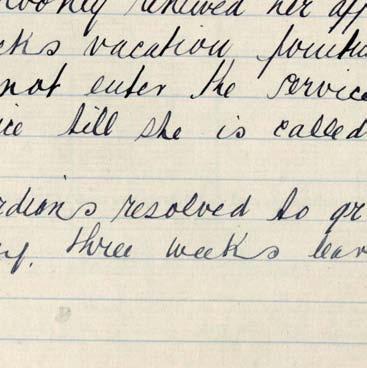 renewed her app
cks vacation
not enter the service
ice till she is called
rdians resolved to gr
three weeks leav